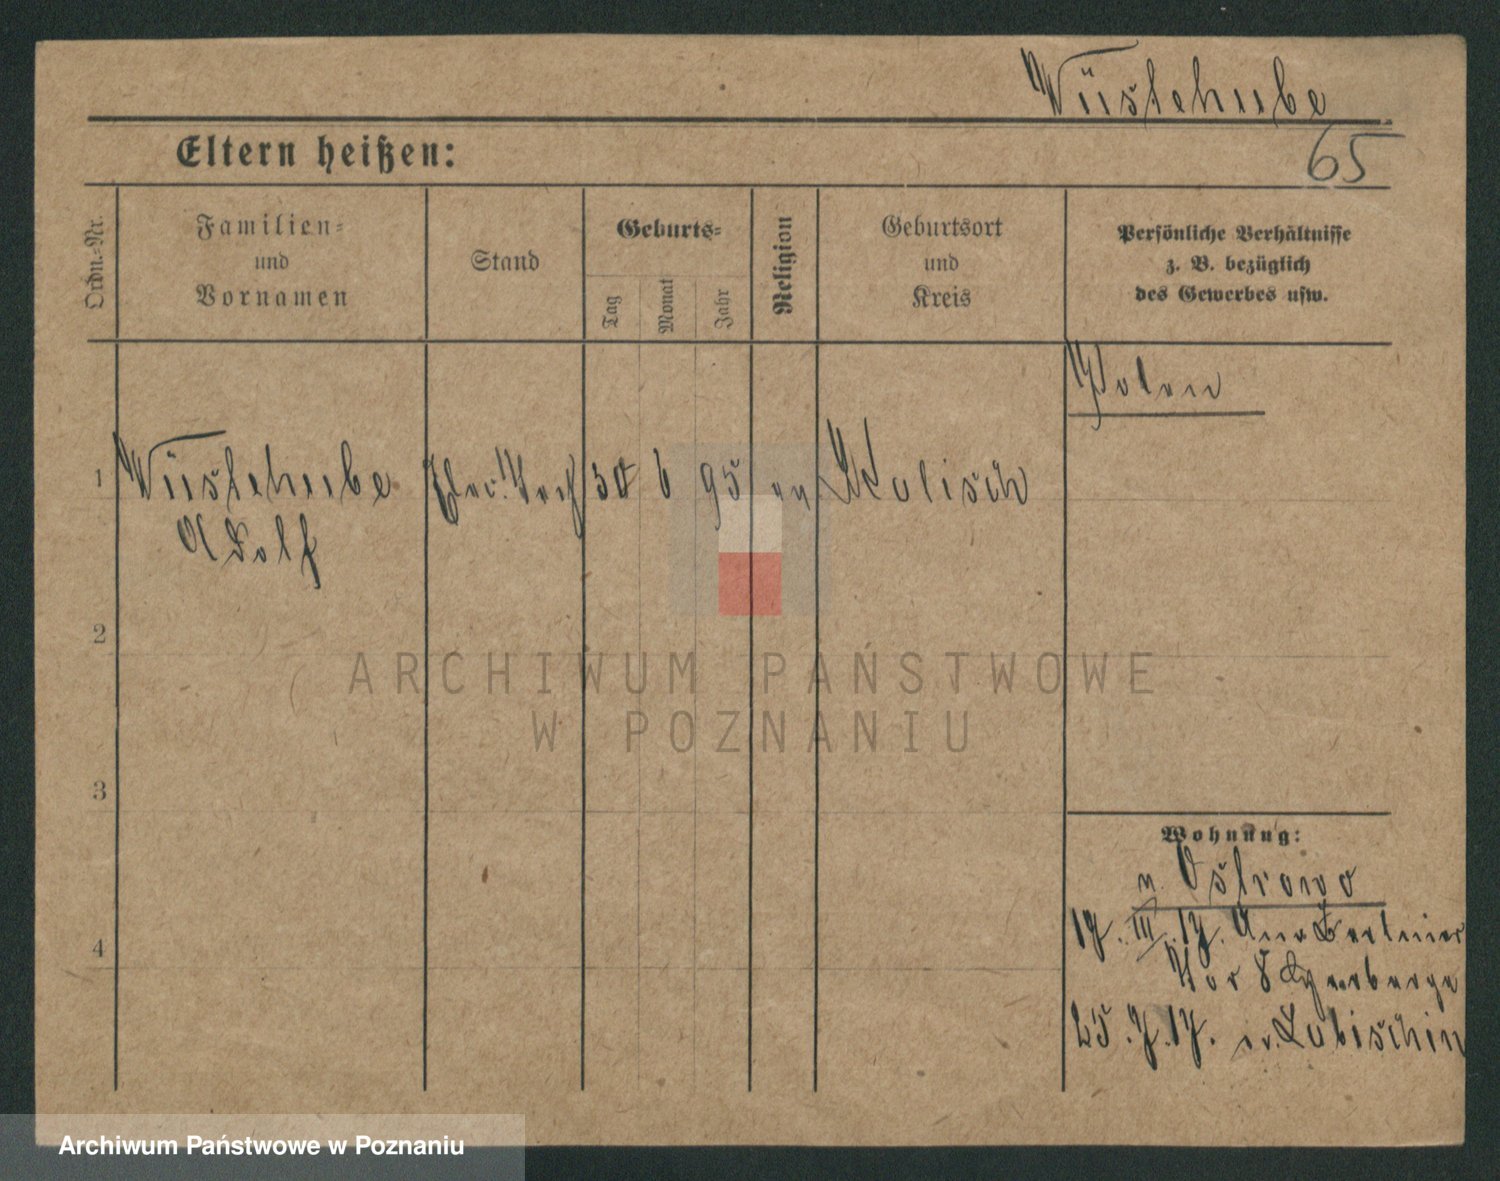 Wüstehube
65
Eltern heißen:
Ordn.-Nr.
Familien-
und
Vornamen
Stand
Geburts-
Tag
Monat
Jahr
Religion
Geburtsort
und
Kreis
Persönliche Verhältnisse
z. B. bezüglich
des Gewerbes usw.
Polen
1
Wüstehube
Adolf
30 6 95
Kalisch
2
ARCHIWUM PAŃSTWOWE
W POZNANIU
3
Wohnung:
n. Ostrowo
4
17. III. 17.
Vor
25. 7. 17. Lubischin
Archiwum Państwowe w Poznaniu